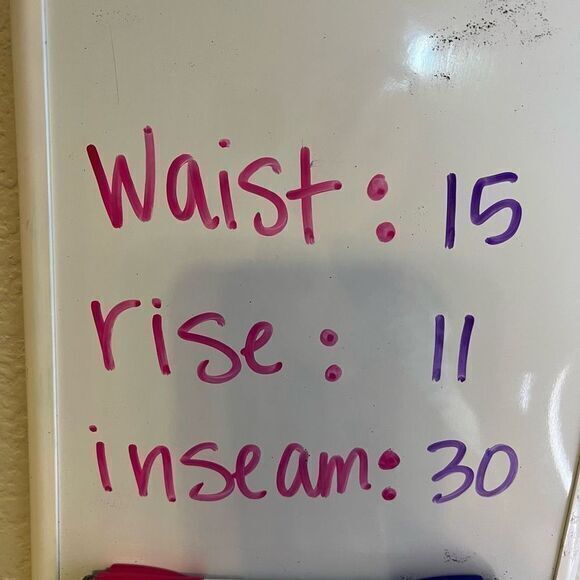 Waist: 15
rise: 11
inseam: 30